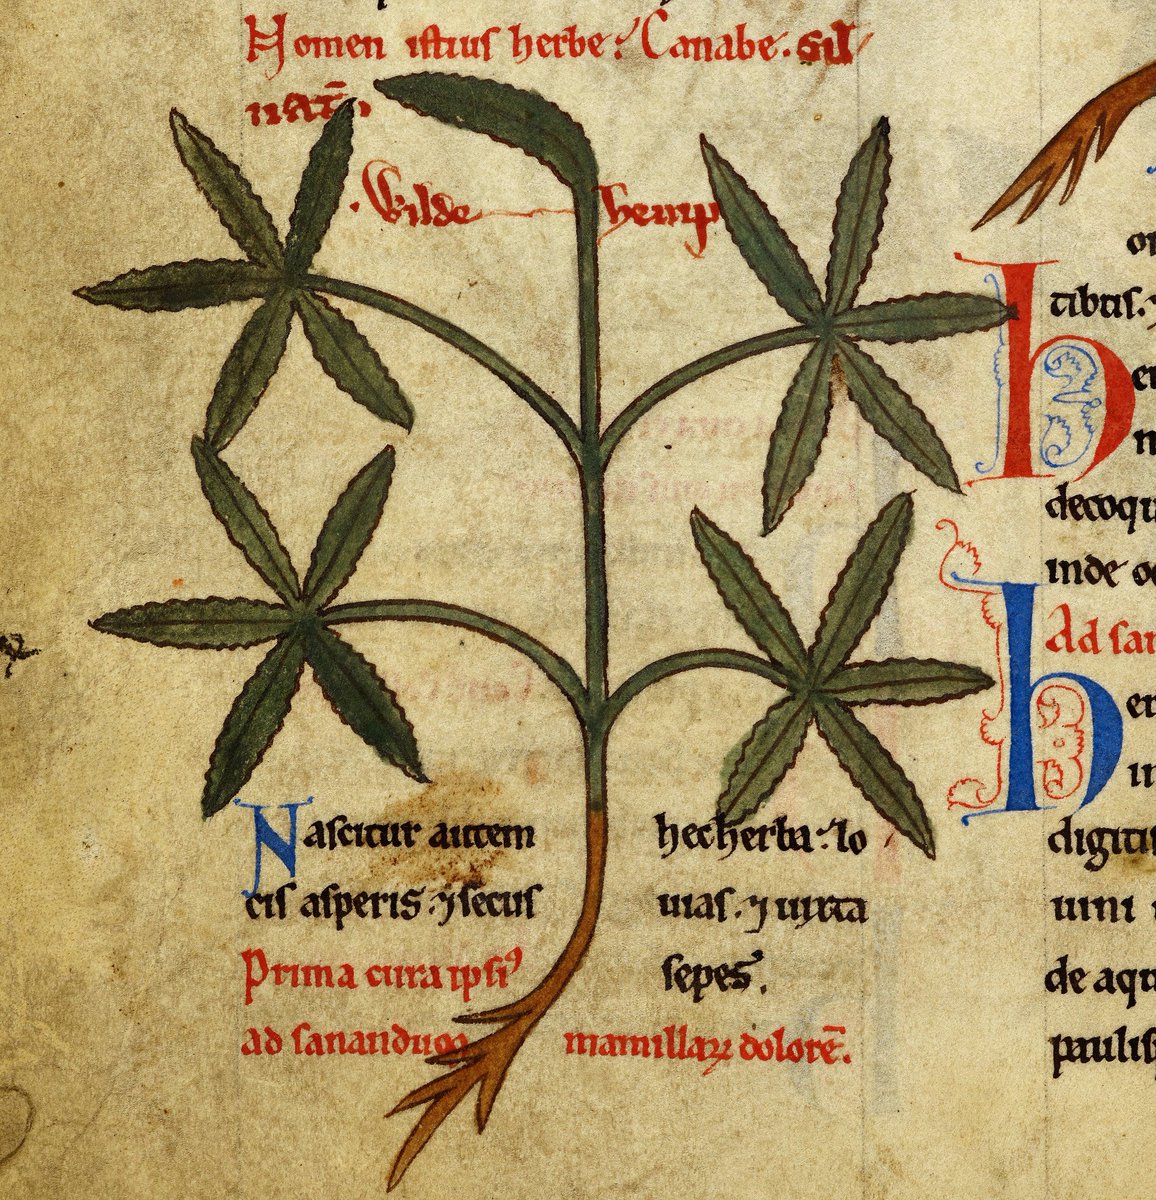 Nomen istius herbe: Canabe. sil
uatˉ.
Wilde hemp
Nascitur autem hec herba: lo
cis asperis. ⁊ secus uias. ⁊ iuxta
sepes.
Prima cura ipsiꝰ
ad sananduꝫ mamillaꝝ dolorē.
tibus.
decoqu
inde oc
Ad san
er
in
digitu
uini
de aqu
paulis